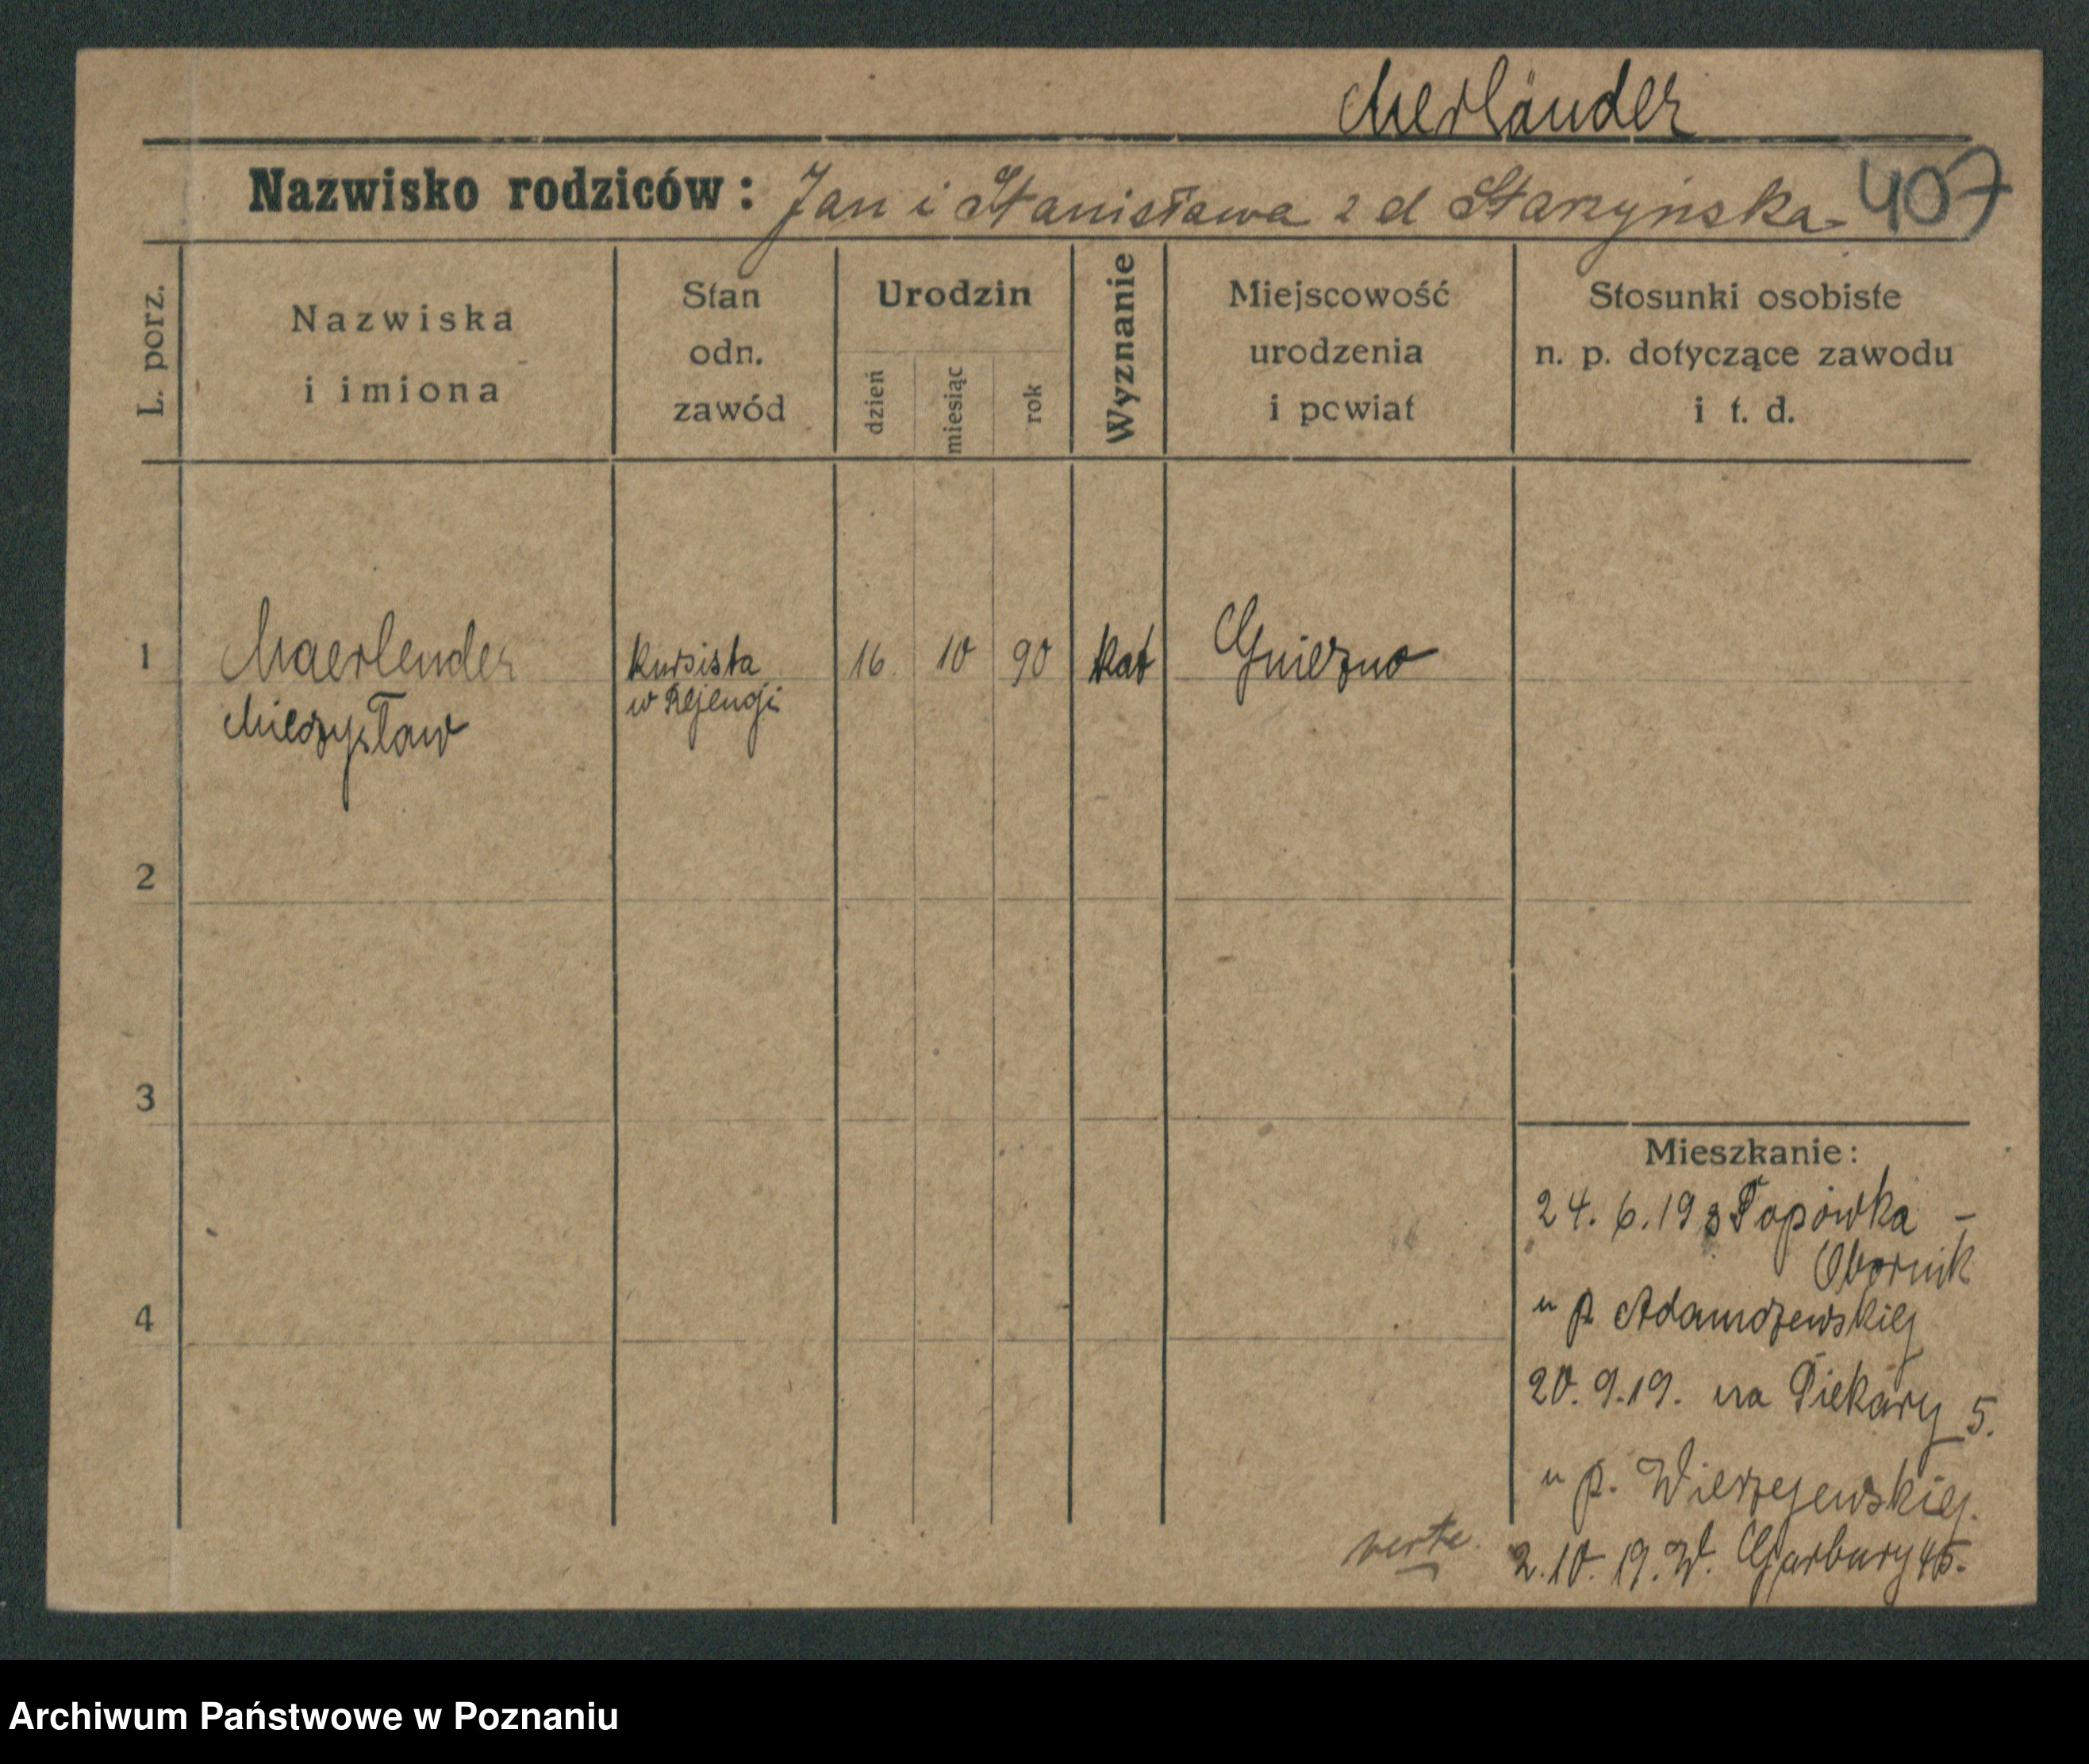 Merländer
Nazwisko rodziców: Jan i Stanisława z d Starzyńska 407
L. porz.
Nazwiska
i imiona
Stan
odn.
zawód
Urodzin
dzień
miesiąc
rok
Wyznanie
Miejscowość
urodzenia
i powiat
Stosunki osobiste
n. p. dotyczące zawodu
i t. d.
1 Maerlender kursista 16 10 90 kat Gniezno
Mieczysław w Rejencji
2
3
4
Mieszkanie:
24. 6. 19 z Popówka -
Obornik
u p Adamczewskiej
20. 9. 19. na Piekary 5.
u p. Wierzejewskiej.
verte. 2. 10. 19. W. Garbary 45.
Archiwum Państwowe w Poznaniu